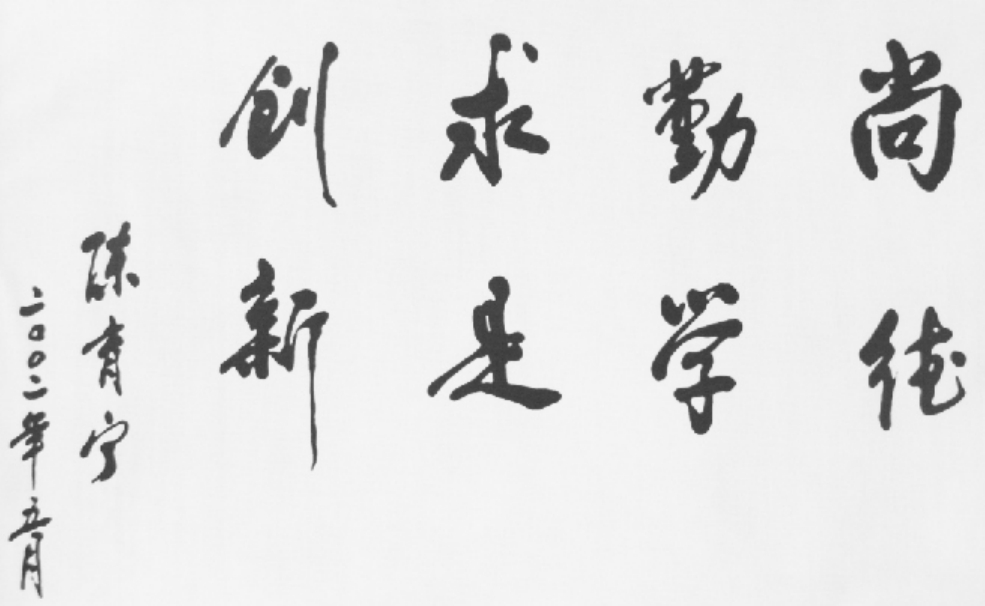 尚德
勤学
求是
创新
陈育宁
二〇〇二年五月